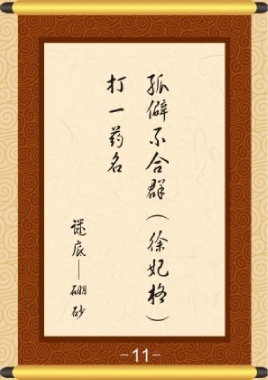 孤僻不合群（徐妃格）
打一药名
谜底——硼砂
-11-